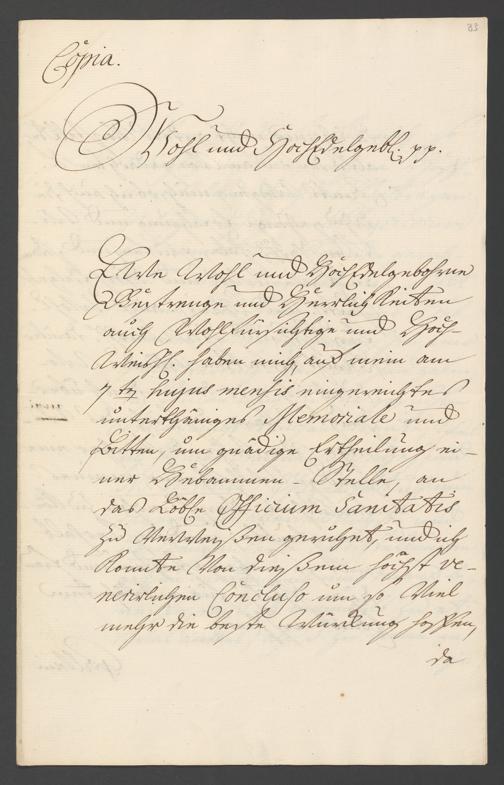 83
Copia.
Wohl und HochEdelgebl. pp.
Ewe Wohl und HochEdelgebohrne
Gestrenge und Herrlichkeiten
auch Wohlfürsichtige und Hoch-
Weißhl. haben mich, auf mein am
7 ten hujus mensis eingereichtes
unterthäniges Memoriale und
Bitten, um gnädige Ertheilung ei-
ner Hebammen-Stelle, an
das Löble Officium Sanitatis
zu Verweyßen geruhet, und ich
konnte Von dießem höchst ve-
nerirlichen Concluso um so Viel
mehr die beste Würckung hoffen,
da